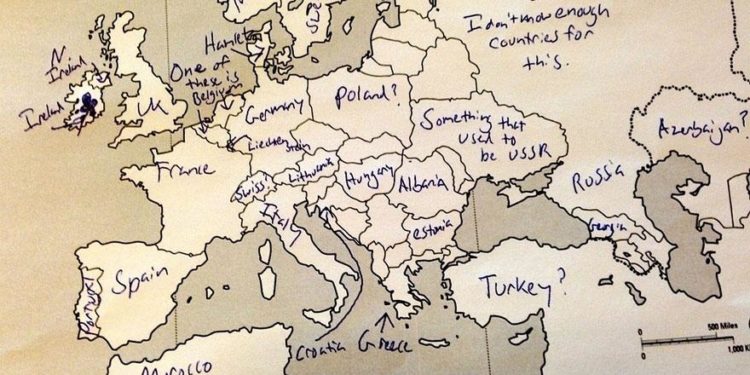 I don't know enough
countries for
this.
N
Ireland
Ireland
UK
Hamlet
One of
these is
Belgium
Germany
Poland?
Something that
used to
be USSR
Azerbaijan?
Russia
Georgia
France
Liechtenstein
Swiss?
Lithuania
Hungary
Albania
estonia
Italy
Spain
Portugal
Turkey?
Croatia
Greece
Morocco
500 Miles